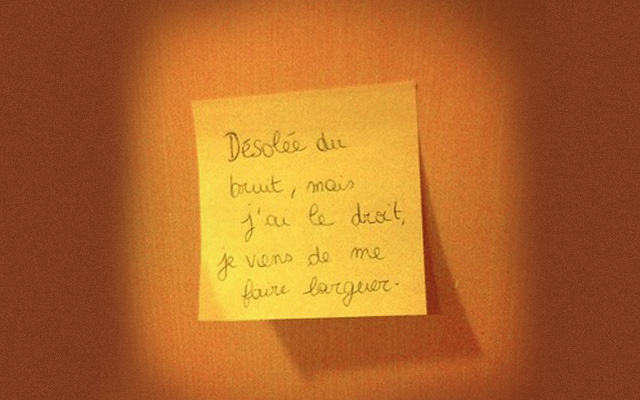 Désolée du
bruit, mais
j'ai le droit,
je viens de me
faire larguer.